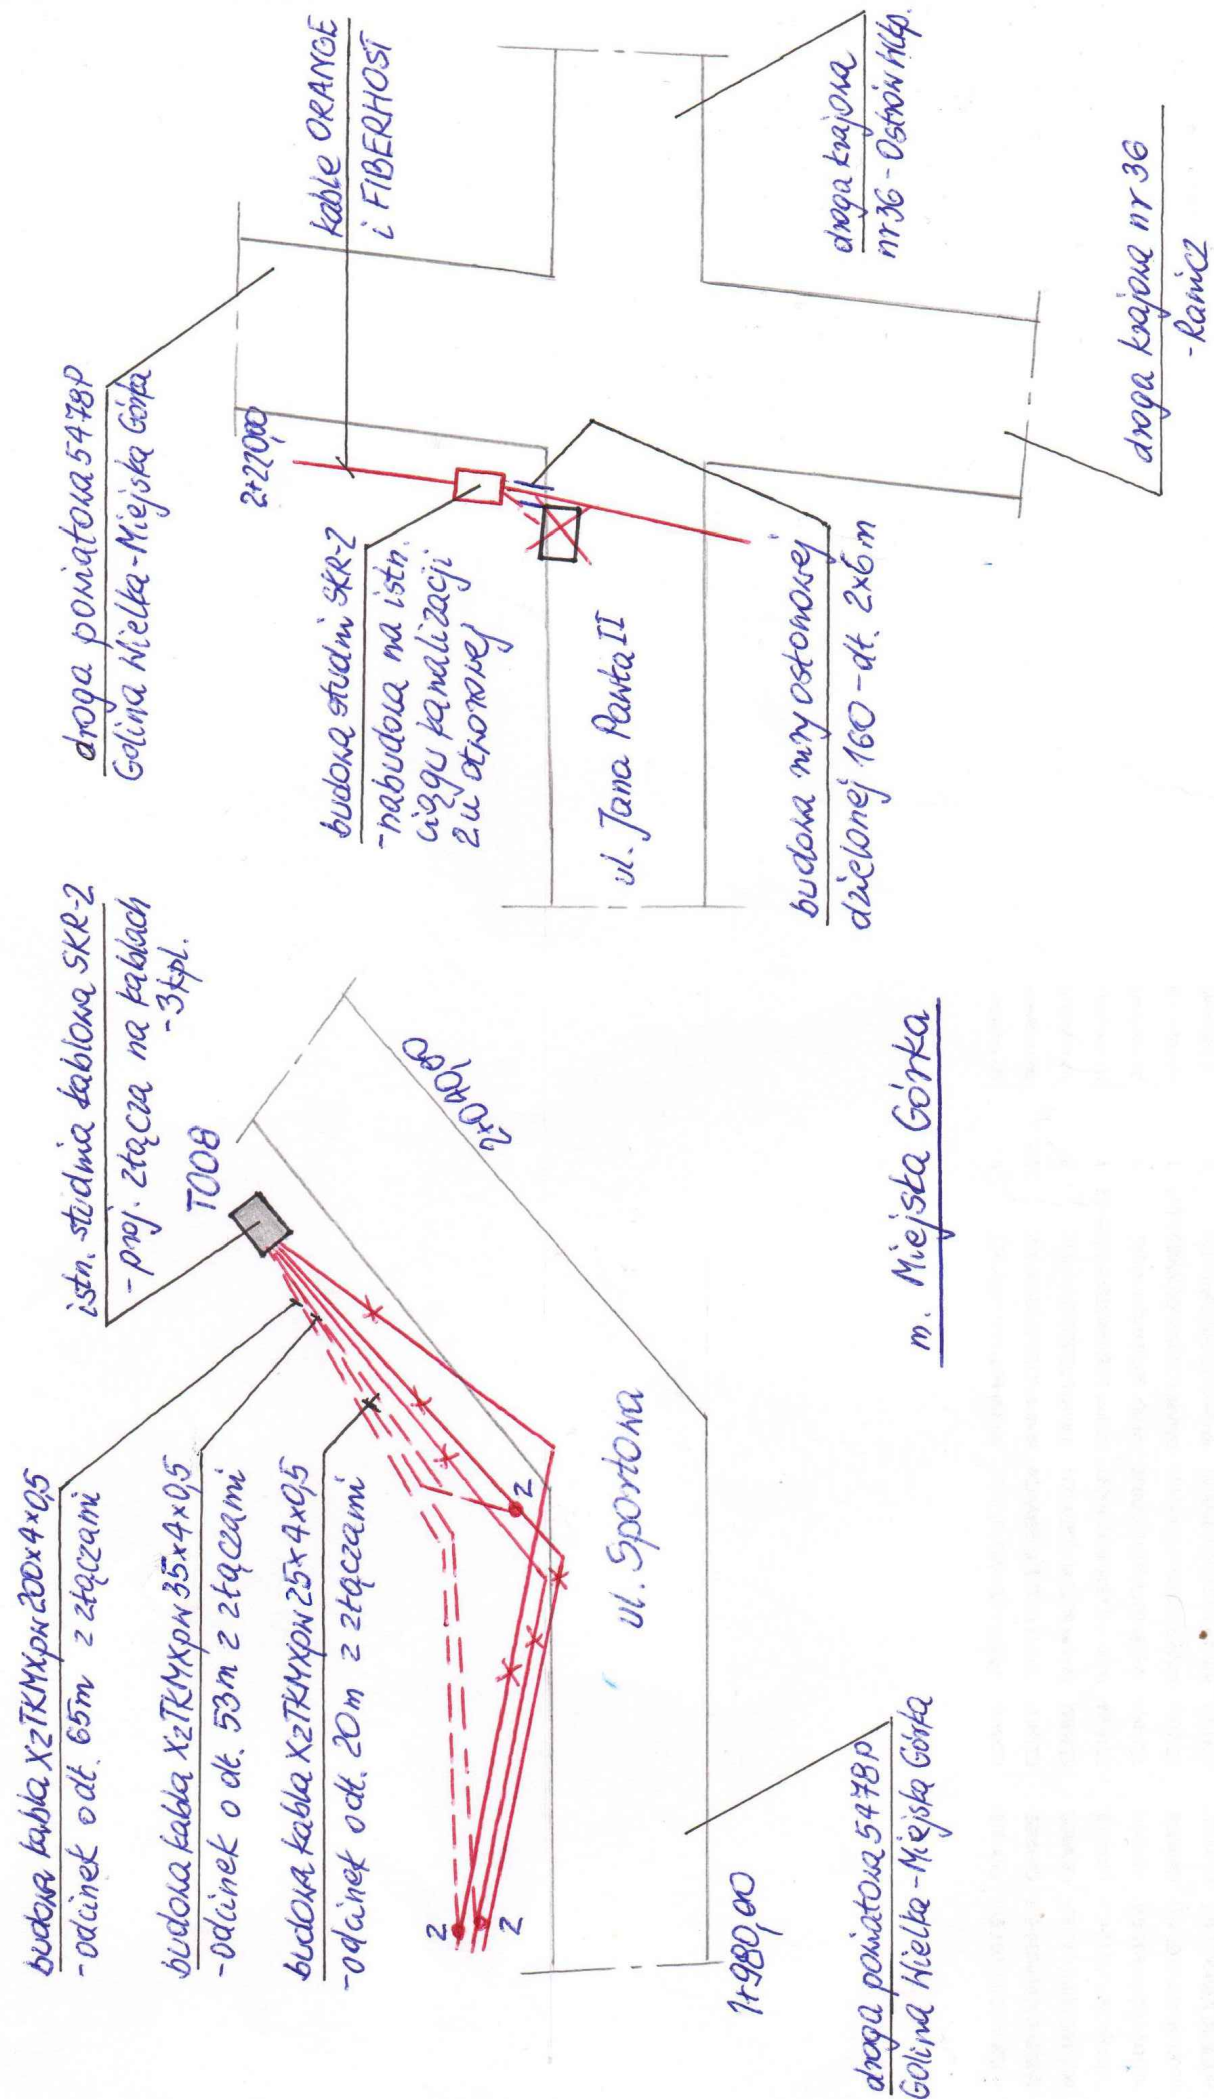 budowa kabla XzTKMXpw 200x4x0,5
- odcinek o dł. 65m z złączami
budowa kabla XzTKMXpw 35x4x0,5
- odcinek o dł. 53m z złączami
budowa kabla XzTKMXpw 25x4x0,5
- odcinek o dł. 20m z złączami
istn. studnia kablowa SKR-2
- proj. złącza na kablach
- 3kpl.
T008
2
2
2
2+040,80
ul. Sportowa
1+980,00
droga powiatowa 5478P
Golina Wielka - Miejska Górka
m. Miejska Górka
droga powiatowa 5478P
Golina Wielka - Miejska Górka
2+220,00
kable ORANGE
i FIBERHOST
budowa studni SKR-2
- nabudowa na istn.
ciągu kanalizacji
2u otworowej
ul. Jana Pawła II
budowa rury osłonowej
dzielonej 160 - dł. 2x6m
droga krajowa
nr 36 - Ostrów Wlkp.
droga krajowa nr 36
- Rawicz